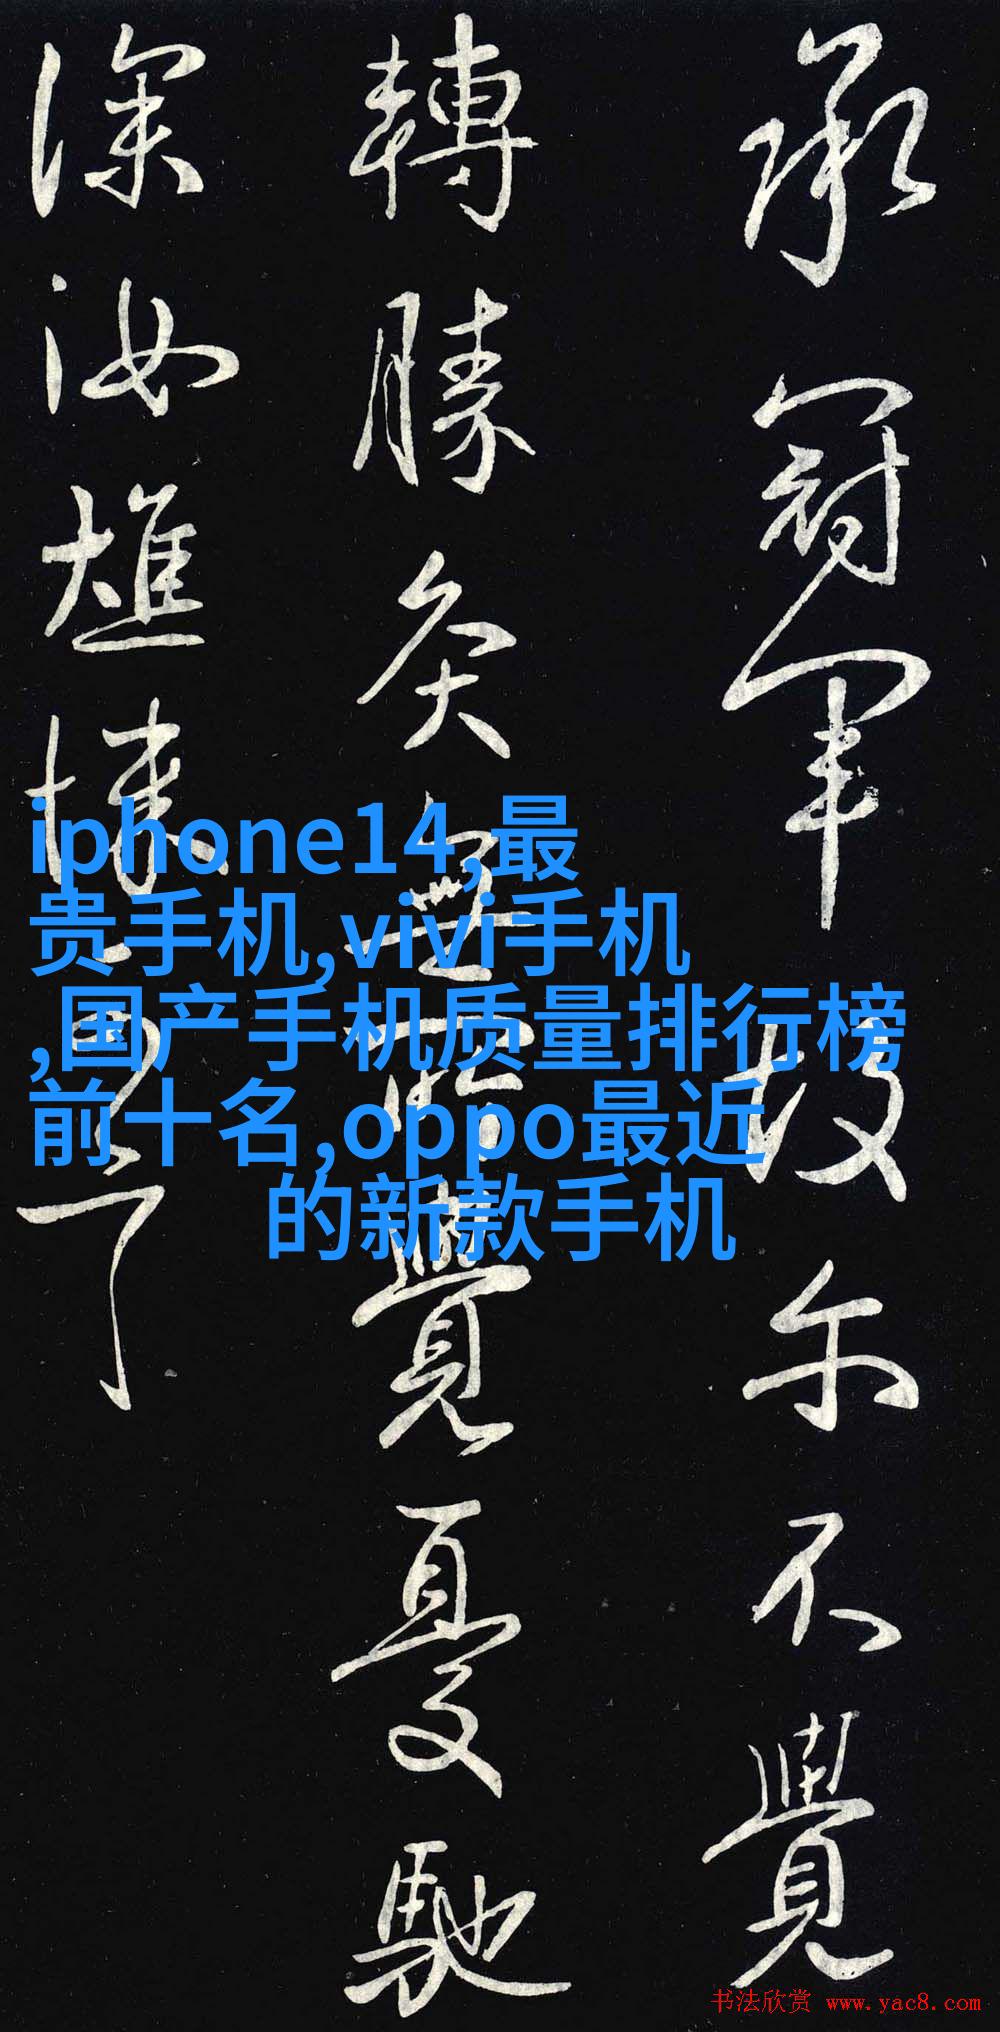 承冠軍故尔不覺
轉勝灸無所覺憂馳
深汝燋悚
iphone14,最
贵手机,vivi手机
,国产手机质量排行榜
前十名,oppo最近
的新款手机
书法欣赏 www.yac8.com